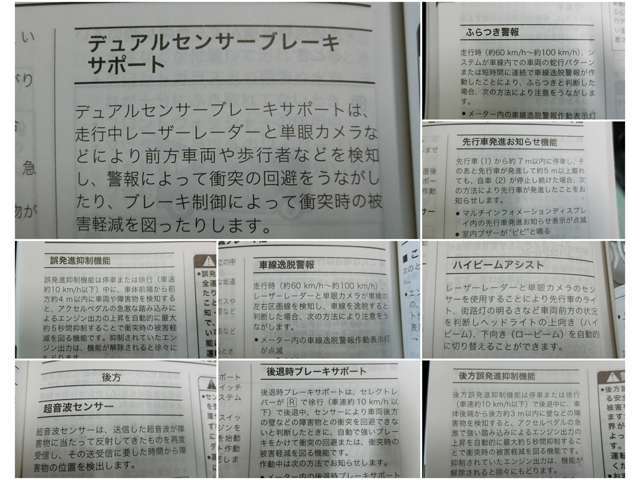 デュアルセンサーブレーキ
サポート
デュアルセンサーブレーキサポートは、
走行中レーザーレーダーと単眼カメラな
どにより前方車両や歩行者などを検知
し、警報によって衝突の回避をうながし
たり、ブレーキ制御によって衝突時の被
害軽減を図ったりします。
ふらつき警報
走行時（約60 km/h～約100 km/h）、シ
ステムが車線内での車両の蛇行パターン
または短時間に連続で車線逸脱警報が作
動したことにより、ふらつきと判断した
場合、次の方法により注意をうながしま
す。
●メーター内の車線逸脱警報作動表示灯
先行車発進お知らせ機能
先行車（1）から約7 m以内に停車し、そ
のあと先行車が発進して約5 m以上離れ
ても、自車（2）が停止し続けた場合、次
の方法により先行車が発進したことをお
知らせします。
●マルチインフォメーションディスプレ
イ内の先行車発進お知らせ表示が点滅
●室内ブザーが“ピピ”と鳴る
誤発進抑制機能
誤発進抑制機能は停車または徐行（車速
約10 km/h以下）中に、車体前端から前
方約4 m以内に車両や障害物を検知する
と、アクセルペダルの急激な踏み込みに
よるエンジン出力の上昇を自動的に最大
約5秒間抑制することで衝突時の被害軽
減を図る機能です。抑制されていたエン
ジン出力は、機能が解除されると徐々に
もどります。
車線逸脱警報
走行時（約60 km/h～約100 km/h）
レーザーレーダーと単眼カメラが車線の
左右区画線を検知し、車線を逸脱すると
判断した場合、次の方法により注意をう
ながします。
●メーター内の車線逸脱警報作動表示灯
が点滅
ハイビームアシスト
レーザーレーダーと単眼カメラのセン
サーを使用することにより先行車のライ
ト、街路灯の明るさなど車両前方の状況
を判断しヘッドライトの上向き（ハイ
ビーム）、下向き（ロービーム）を自動的
に切り替えることができます。
後方
超音波センサー
超音波センサーは、送信した超音波が障
害物に当たって反射してきたものを再度
受信し、その送受信に要した時間から障
害物の位置を検出します。
後退時ブレーキサポート
後退時ブレーキサポートは、セレクトレ
バーが R で徐行（車速約10 km/h以
下）で後退中、センサーにより車両後方
の壁などの障害物との衝突を回避できな
いと判断したときに、自動で強いブレー
キをかけて衝突の回避または、衝突時の
被害軽減を図る機能です。
作動中は次の方法でお知らせします。
後方誤発進抑制機能
後方誤発進抑制機能は停車または徐行
（車速約10 km/h以下）で後退中に、車
体後端から後方約3 m以内に壁などの障
害物を検知すると、アクセルペダルの
急激で強い踏み込みによるエンジン出力
の上昇を自動的に最大約5秒抑制するこ
とで衝突時の被害軽減を図る機能です。
抑制されていたエンジン出力は、機能が
解除されると徐々にもどります。